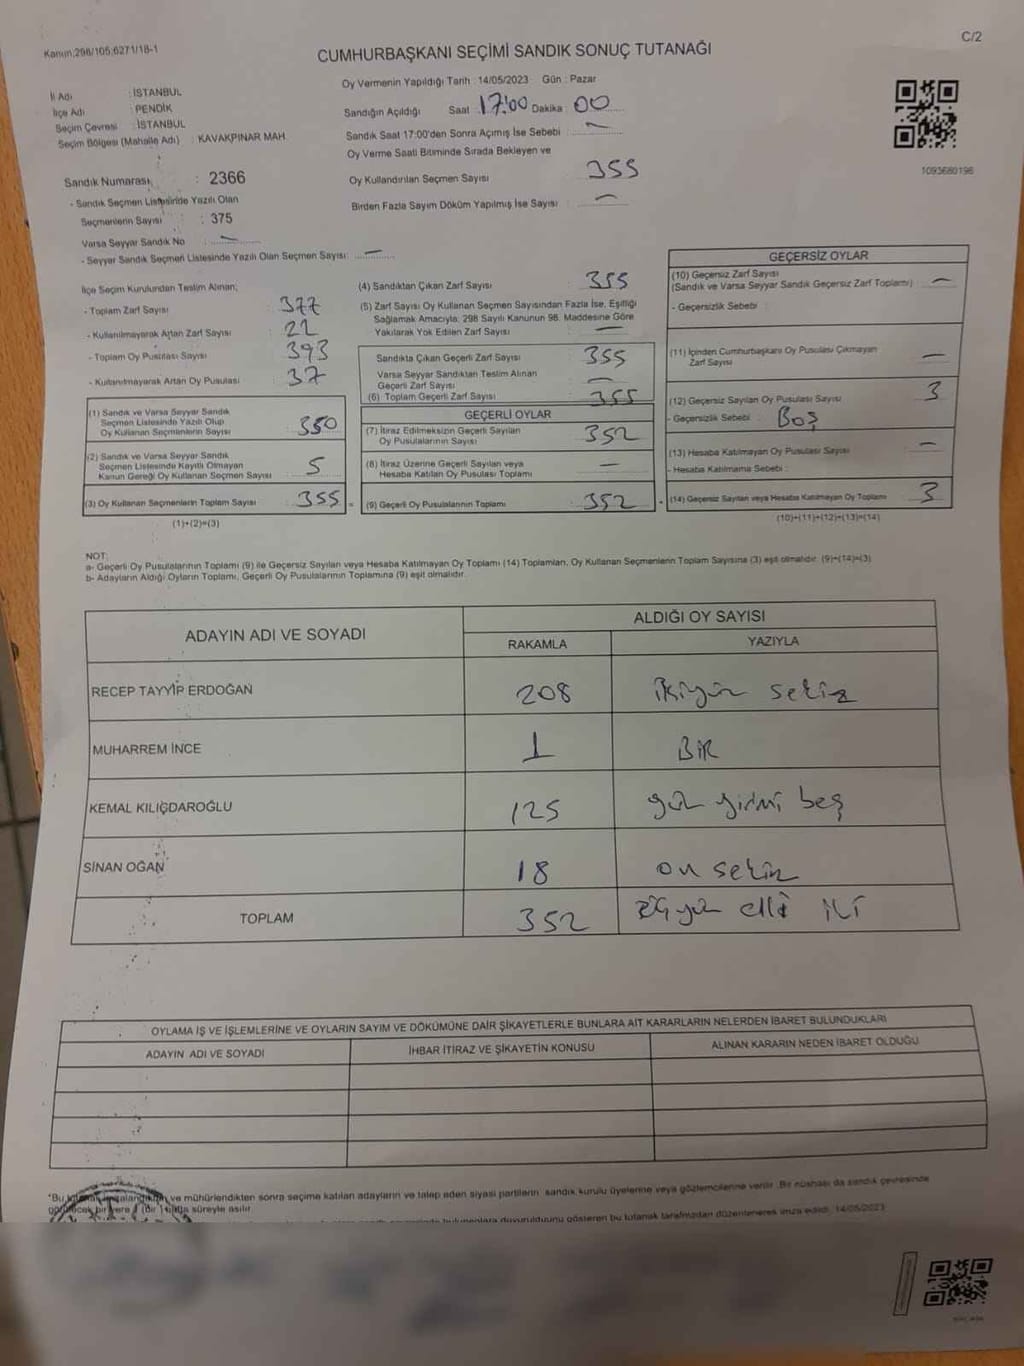 Kanun;298/105;6271/18-1
C/2
CUMHURBAŞKANI SEÇİMİ SANDIK SONUÇ TUTANAĞI
İl Adı : İSTANBUL
İlçe Adı : PENDİK
Seçim Çevresi : İSTANBUL
Seçim Bölgesi (Mahalle Adı) : KAVAKPINAR MAH.
Oy Vermenin Yapıldığı Tarih : 14/05/2023 Gün : Pazar
Sandığın Açıldığı Saat 17:00 Dakika 00
Sandık Saat 17:00'den Sonra Açımış İse Sebebi : —
Oy Verme Saati Bitiminde Sırada Bekleyen ve
Oy Kullandırılan Seçmen Sayısı : 355
Birden Fazla Sayım Döküm Yapılmış İse Sayısı : —
1093680196
Sandık Numarası : 2366
- Sandık Seçmen Listesinde Yazılı Olan
Seçmenlerin Sayısı : 375
Varsa Seyyar Sandık No : —
- Seyyar Sandık Seçmen Listesinde Yazılı Olan Seçmen Sayısı: —
İlçe Seçim Kurulundan Teslim Alınan;
- Toplam Zarf Sayısı : 377
- Kullanılmayarak Artan Zarf Sayısı : 22
- Toplam Oy Pusulası Sayısı : 393
- Kullanılmayarak Artan Oy Pusulası : 37
(1) Sandık ve Varsa Seyyar Sandık
Seçmen Listesinde Yazılı Olup
Oy Kullanan Seçmenlerin Sayısı : 350
(2) Sandık ve Varsa Seyyar Sandık
Seçmen Listesinde Kayıtlı Olmayan
Kanun Gereği Oy Kullanan Seçmen Sayısı : 5
(3) Oy Kullanan Seçmenlerin Toplam Sayısı : 355
(1)+(2)=(3)
(4) Sandıktan Çıkan Zarf Sayısı : 355
(5) Zarf Sayısı Oy Kullanan Seçmen Sayısından Fazla İse, Eşitliği
Sağlamak Amacıyla; 298 Sayılı Kanunun 98. Maddesine Göre
Yakılarak Yok Edilen Zarf Sayısı : —
Sandıkta Çıkan Geçerli Zarf Sayısı : 355
Varsa Seyyar Sandıktan Teslim Alınan
Geçerli Zarf Sayısı : —
(6) Toplam Geçerli Zarf Sayısı : 355
GEÇERLİ OYLAR
(7) İtiraz Edilmeksizin Geçerli Sayılan
Oy Pusulalarının Sayısı : 352
(8) İtiraz Üzerine Geçerli Sayılan veya
Hesaba Katılan Oy Pusulası Toplamı : —
(9) Geçerli Oy Pusulalarının Toplamı : 352
GEÇERSİZ OYLAR
(10) Geçersiz Zarf Sayısı
(Sandık ve Varsa Seyyar Sandık Geçersiz Zarf Toplamı) : —
- Geçersizlik Sebebi :
(11) İçinden Cumhurbaşkanı Oy Pusulası Çıkmayan
Zarf Sayısı : —
(12) Geçersiz Sayılan Oy Pusulası Sayısı : 3
- Geçersizlik Sebebi : Boş
(13) Hesaba Katılmayan Oy Pusulası Sayısı : —
- Hesaba Katılmama Sebebi :
(14) Geçersiz Sayılan veya Hesaba Katılmayan Oy Toplamı : 3
(10)+(11)+(12)+(13)=(14)
NOT:
a- Geçerli Oy Pusulalarının Toplamı (9) ile Geçersiz Sayılan veya Hesaba Katılmayan Oy Toplamı (14) Toplamları, Oy Kullanan Seçmenlerin Toplam Sayısına (3) eşit olmalıdır. (9)+(14)=(3)
b- Adayların Aldığı Oyların Toplamı, Geçerli Oy Pusulalarının Toplamına (9) eşit olmalıdır.
ADAYIN ADI VE SOYADI
ALDIĞI OY SAYISI
RAKAMLA YAZIYLA
RECEP TAYYİP ERDOĞAN 208 ikiyüz sekiz
MUHARREM İNCE 1 BİR
KEMAL KILIÇDAROĞLU 125 yüz yirmi beş
SİNAN OĞAN 18 on sekiz
TOPLAM 352 üçyüz elli iki
OYLAMA İŞ VE İŞLEMLERİNE VE OYLARIN SAYIM VE DÖKÜMÜNE DAİR ŞİKAYETLERLE BUNLARA AİT KARARLARIN NELERDEN İBARET BULUNDUKLARI
ADAYIN ADI VE SOYADI İHBAR İTİRAZ VE ŞİKAYETİN KONUSU ALINAN KARARIN NEDEN İBARET OLDUĞU
ve mühürlendikten sonra seçime katılan adayların ve talep eden siyasi partilerin sandık kurulu üyelerine veya gözlemcilerine verilir. Bir nüshası da sandık çevresinde
süreyle asılır.
duyurulduğunu gösteren bu tutanak tarafımızdan düzenlenerek imza edildi. 14/05/2023